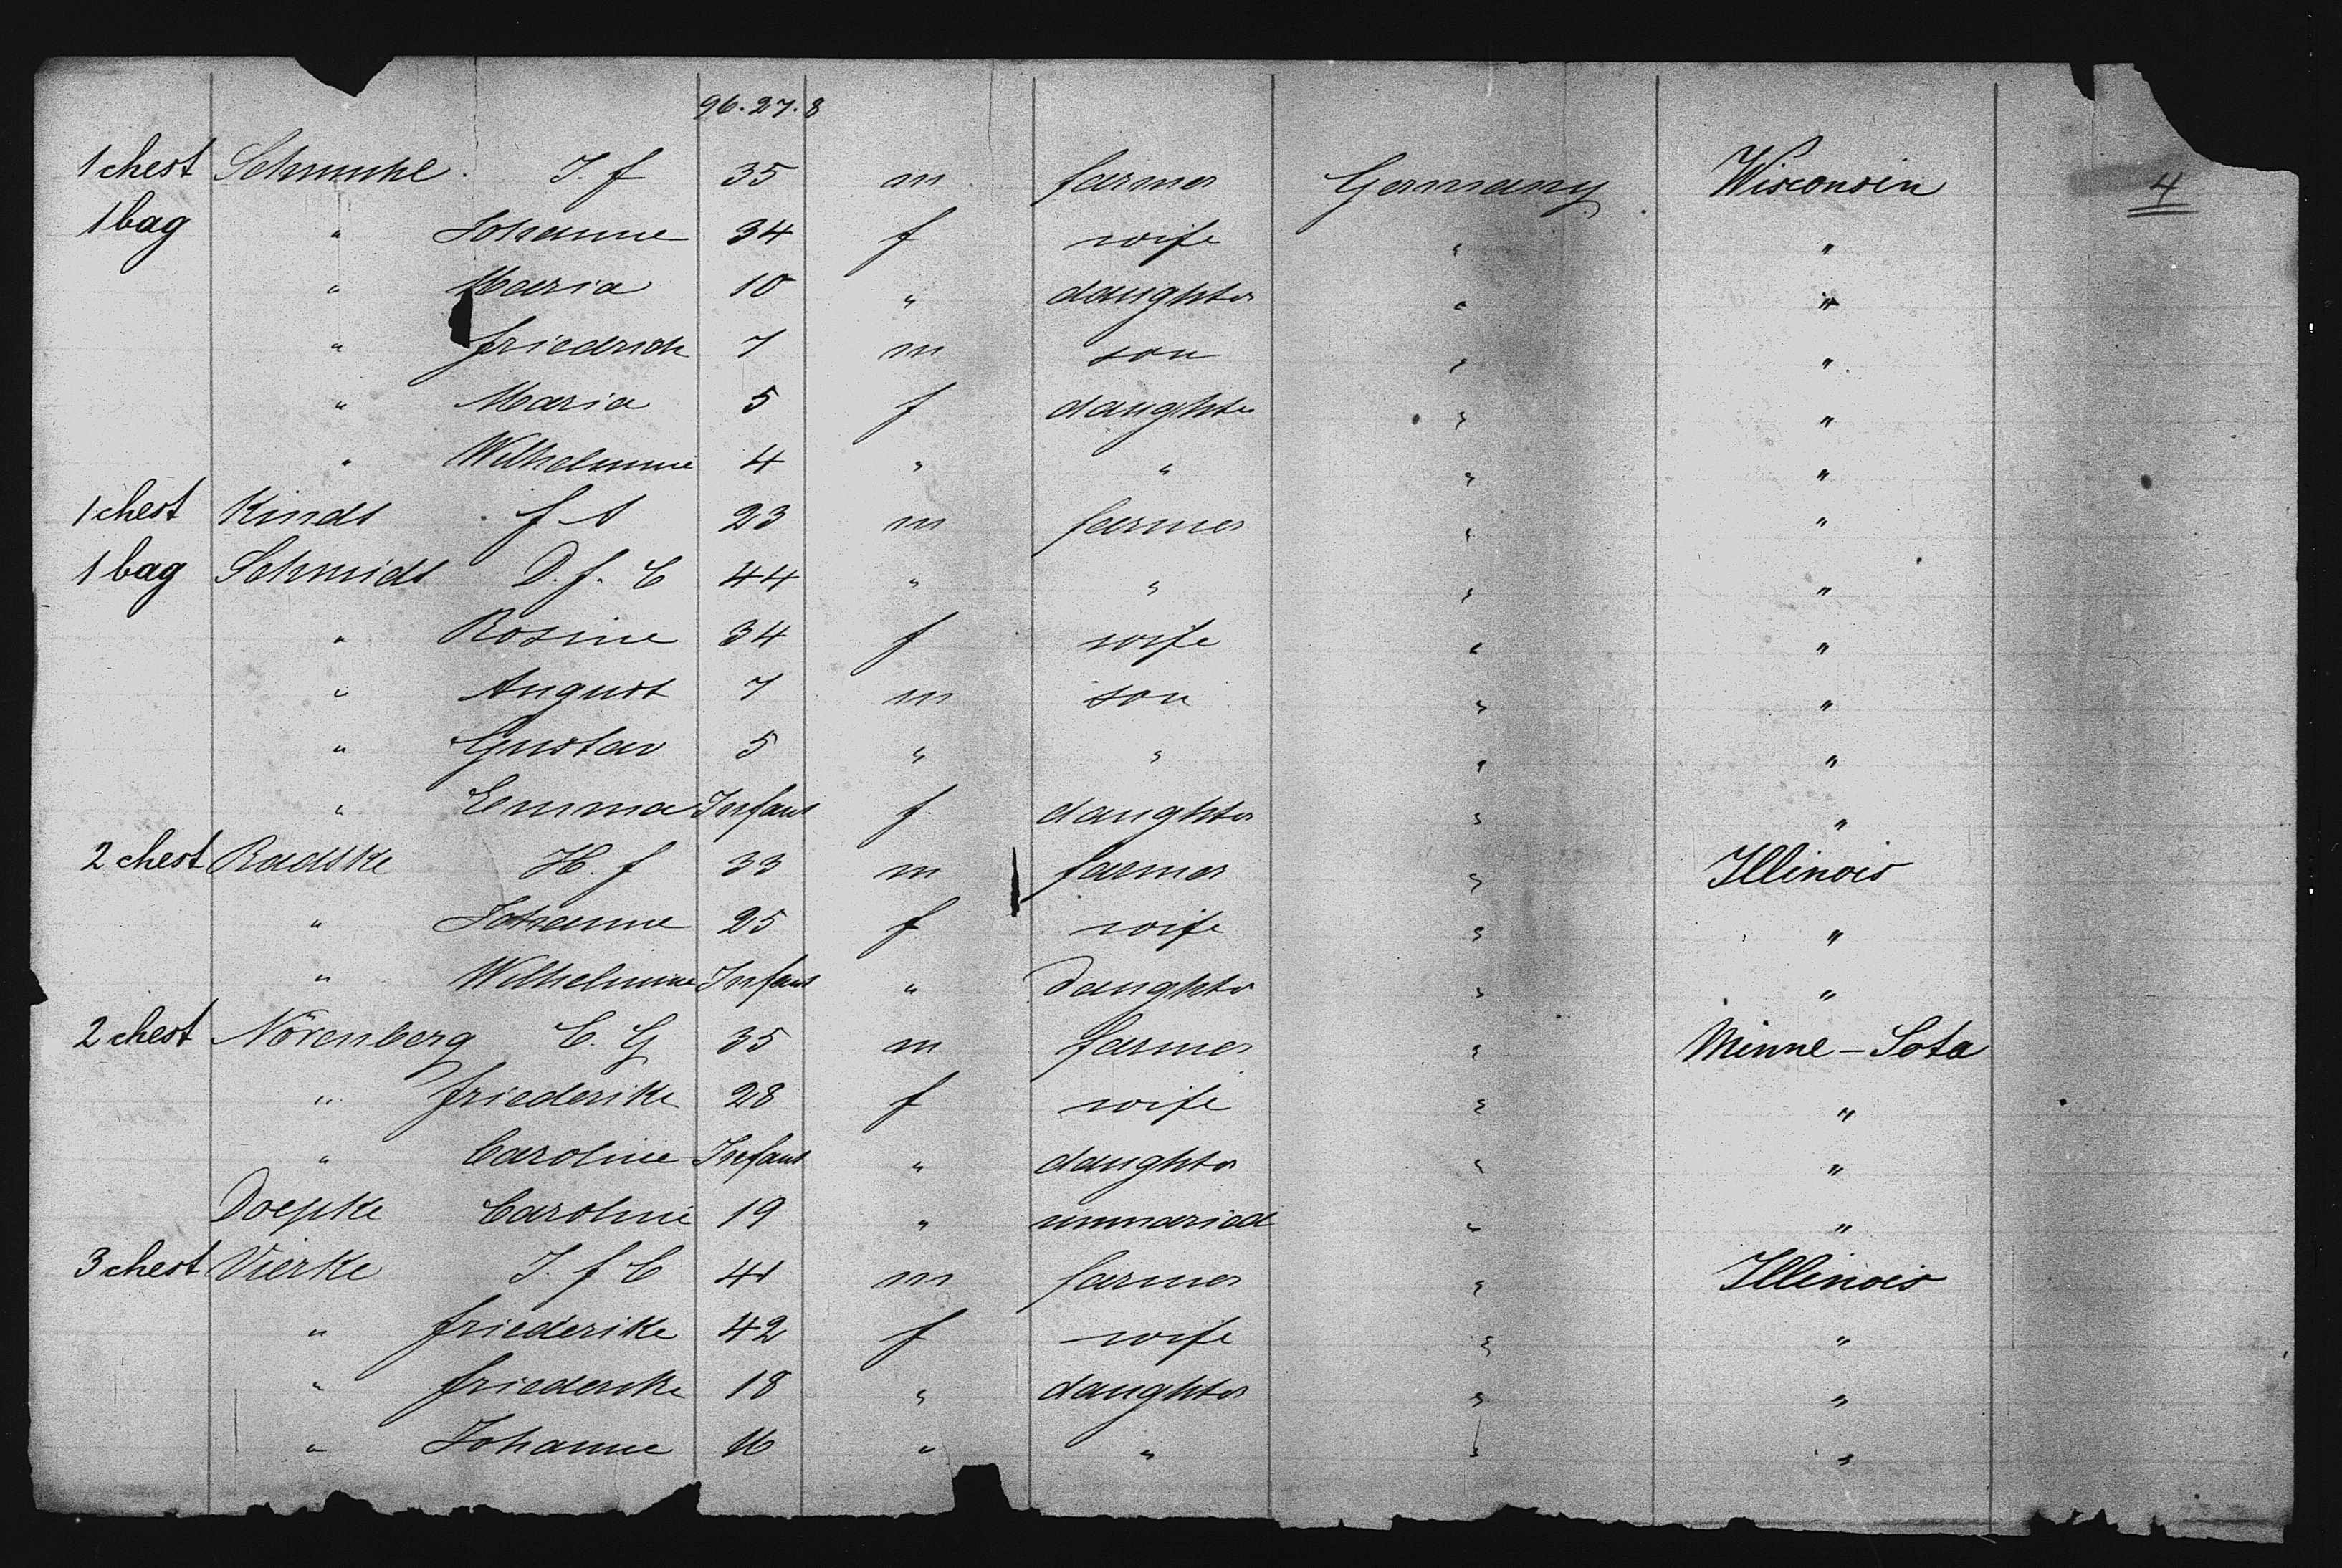 96. 27. 8
1 chest Schmuhl J. f 35 m farmer Germany Wisconsin 4
1 bag " Johanne 34 f wife " "
" Maria 10 " daughter " "
" friedrich 7 m son " "
" Maria 5 f daughter " "
" Wilhelmine 4 " " " "
1 chest Kindt f A 23 m farmer " "
1 bag Schmidt D. f. C 44 " " " "
" Rosine 34 f wife " "
" August 7 m son " "
" Gustav 5 " " " "
" Emma Infant f daughter " "
2 chest Radske H. f 33 m farmer " Illinois
" Johanne 25 f wife " "
" Wilhelmine Infant " daughter " "
2 chest Nörenberg C. G 35 m farmer " Minne-Sota
" friederike 28 f wife " "
" Caroline Infant " daughter " "
Doepke Caroline 19 " unmaried " "
3 chest Vierke J. f C 41 m farmer " Illinois
" friederike 42 f wife " "
" friederike 18 " daughter " "
" Johanne 16 " " " "